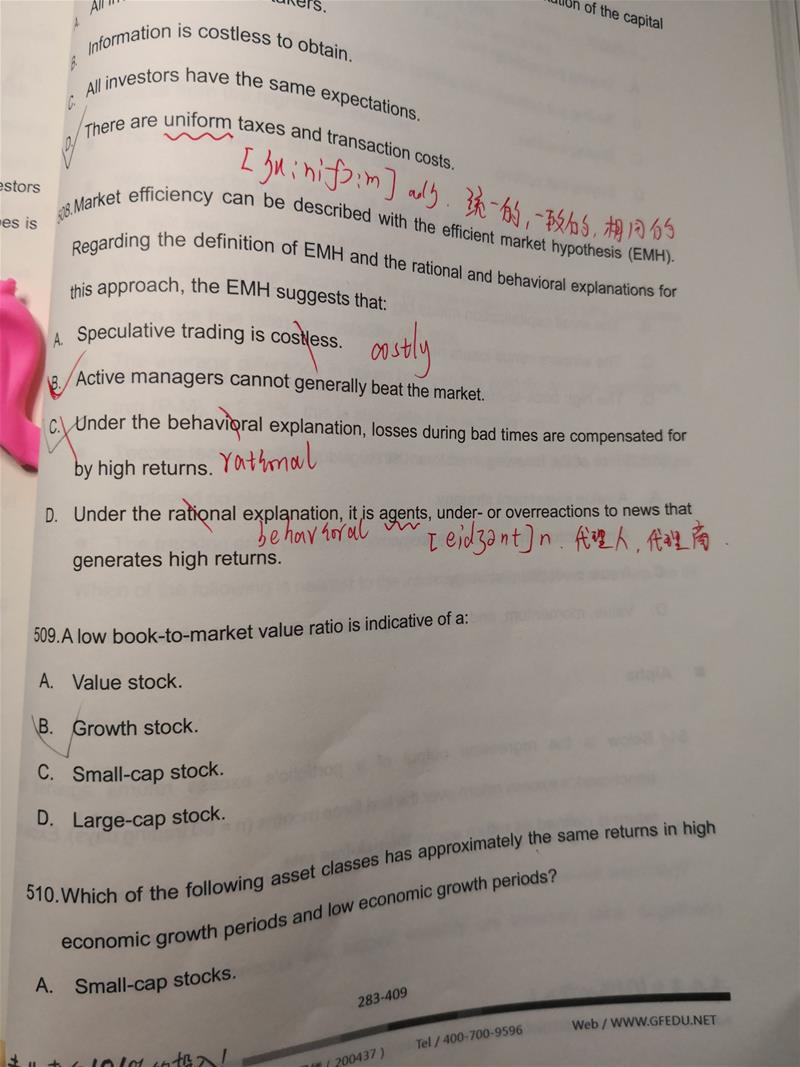 of the capital
B. Information is costless to obtain.
C. All investors have the same expectations.
D. There are uniform taxes and transaction costs.
[ʒu:nifɔ:m] adj. 统一的, 一致的, 相同的
estors
es is
508. Market efficiency can be described with the efficient market hypothesis (EMH).
Regarding the definition of EMH and the rational and behavioral explanations for
this approach, the EMH suggests that:
A. Speculative trading is costless. costly
B. Active managers cannot generally beat the market.
C. Under the behavioral explanation, losses during bad times are compensated for
by high returns. rational
D. Under the rational explanation, it is agents, under- or overreactions to news that
behavioral [eidʒənt] n. 代理人, 代理商
generates high returns.
509. A low book-to-market value ratio is indicative of a:
A. Value stock.
B. Growth stock.
C. Small-cap stock.
D. Large-cap stock.
510. Which of the following asset classes has approximately the same returns in high
economic growth periods and low economic growth periods?
A. Small-cap stocks.
283-409
200437 ) Tel / 400-700-9596 Web / WWW.GFEDU.NET